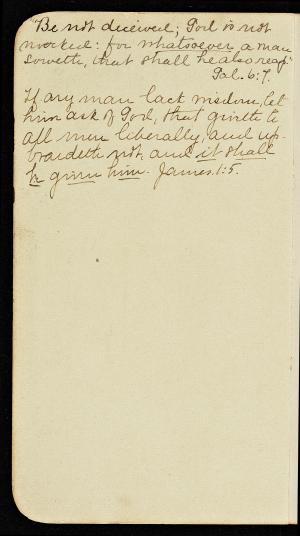 "Be not deceived; God is not
mocked: for whatsoever a man
soweth, that shall he also reap"
Gal. 6:7.
If any man lack wisdom, let
him ask of God, that giveth to
all men liberally, and up-
braideth not, and it shall
be given him. James. 1:5.